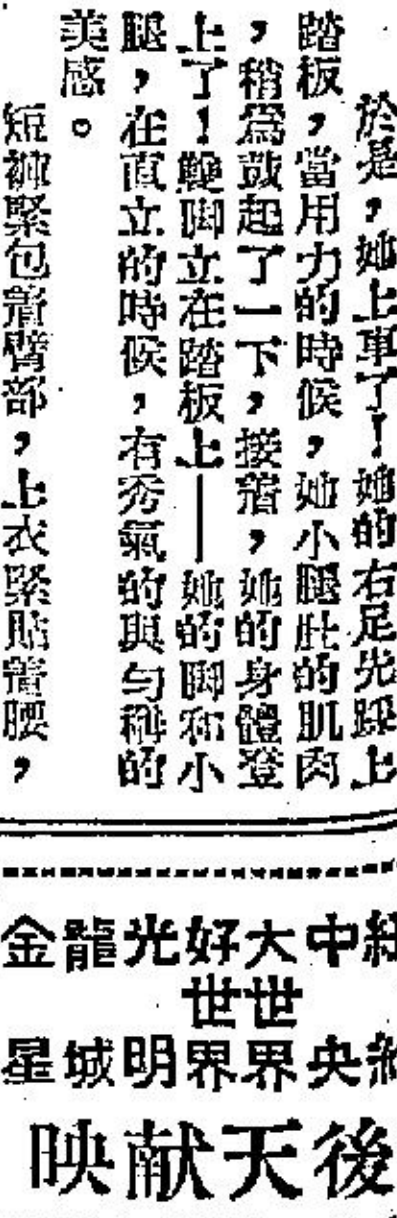 於是，她上車了！她的右足先踩上
踏板，當用力的時候，她小腿肚的肌肉
，稍為鼓起了一下，接著，她的身體登
上了！雙脚立在踏板上——她的脚和小
腿，在直立的時候，有秀氣的與勻稱的
美感。
短褲緊包着臀部，上衣緊貼着腰，
中央
大世界
好世界
光明
龍城
金星
後天献映